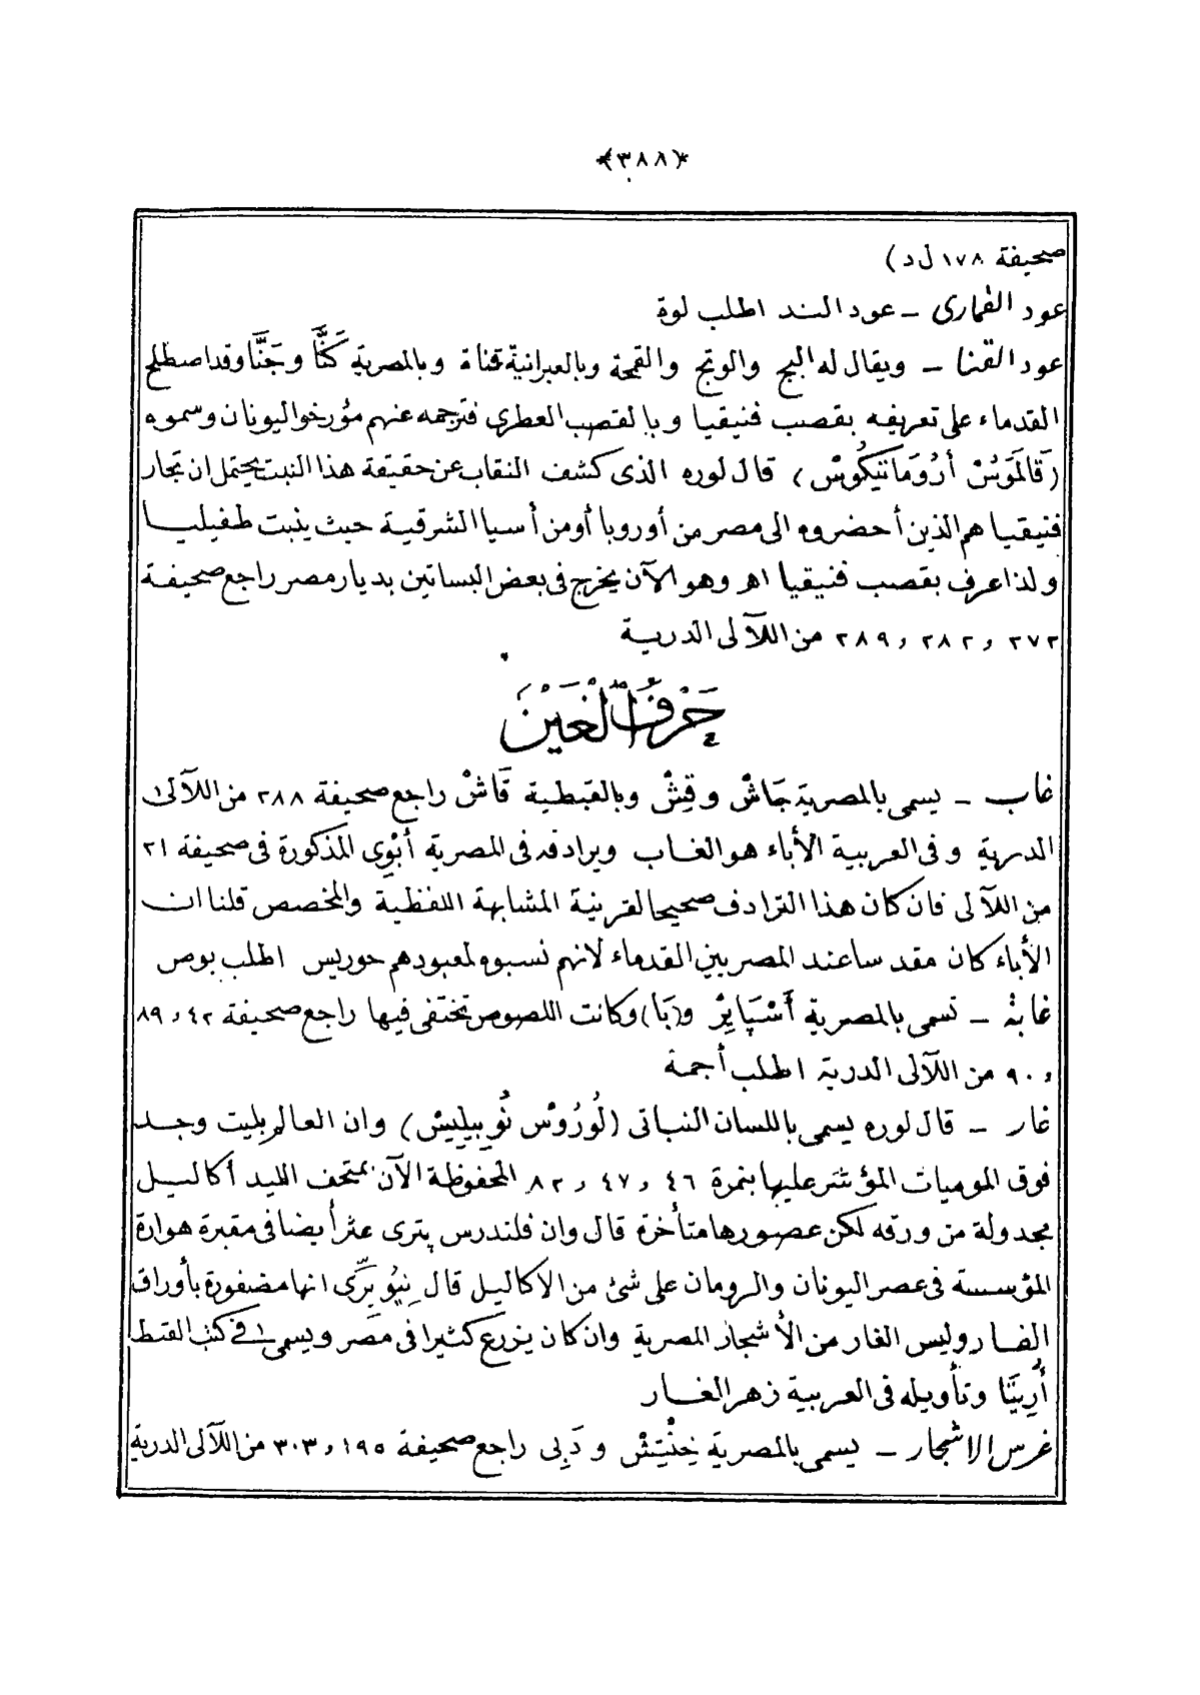 ﴿٣٨٨﴾
صحيفة ١٧٨ ل د)
عود القمارى ــ عود الند اطلب لوة
عود القنا ــ ويقال له البج والوتج والقمحة وبالعبرانية قناة وبالمصرية كَنَّا وجَنَّا وقد اصطلح
القدماء على تعريفه بقصب فنيقيا وبالقصب العطرى فترجمه عنهم مؤرخو اليونان وسموه
(قَالَمَوُسْ أَرُومَاتِيكُوسْ) قال لوره الذى كشف النقاب عن حقيقة هذا النبت يحتمل ان تجار
فنيقيا هم الذين أحضروه الى مصر من أوروبا أومن أسيا الشرقية حيث ينبت طفيليا
ولذا عرف بقصب فنيقيا اهـ وهو الآن يخرج فى بعض البساتين بديار مصر راجع صحيفة
٢٧٢ و ٢٨٢ و ٢٨٩ من اللآلى الدرية
حَرْفُ الْغَيْن
غاب ــ يسمى بالمصرية جَاشْ وقِشْ وبالقبطية قَاشْ راجع صحيفة ٢٨٨ من اللآلئ
الدرية وفى العربية الأباء هو الغاب ويرادفه فى المصرية أَبْوِى المذكورة فى صحيفة ٢١
من اللآلى فان كان هذا الترادف صحيحا لقرينة المشابهة اللفظية والمخصص قلنا ان
الأباء كان مقدسا عند المصريين القدماء لانهم نسبوه لمعبودهم حوريس اطلب بوص
غابة ــ تسمى بالمصرية أَسْپَايِرْ و(بَا) وكانت اللصوص تختفى فيها راجع صحيفة ٤٢ و ٨٩
و ٩٠ من اللآلى الدرية اطلب أجمة
غار ــ قال لوره يسمى باللسان النباتى (لُورُوسْ نُوبِيلِيسْ) وان العالم بليت وجد
فوق الموميات المؤشر عليها بنمرة ٤٦ و ٤٧ و ٨٢ المحفوظة الآن بمتحف الليد أكاليل
مجدولة من ورقه لكن عصورها متأخرة قال وان فلندرس پترى عثر أيضا فى مقبرة هوارة
المؤسسة فى عصر اليونان والرومان على شئ من الاكاليل قال نِيُوبَرِّى انها مضفورة بأوراق
الغار وليس الغار من الأشجار المصرية وان كان يزرع كثيرا فى مصر ويسمى فى كتب القبط
أُرِبَيَّا وتأويله فى العربية زهر الغار
غرس الاشجار ــ يسمى بالمصرية خِنْتِشْ و دَبِى راجع صحيفة ١٩٥ و ٣٠٣ من اللآلى الدرية